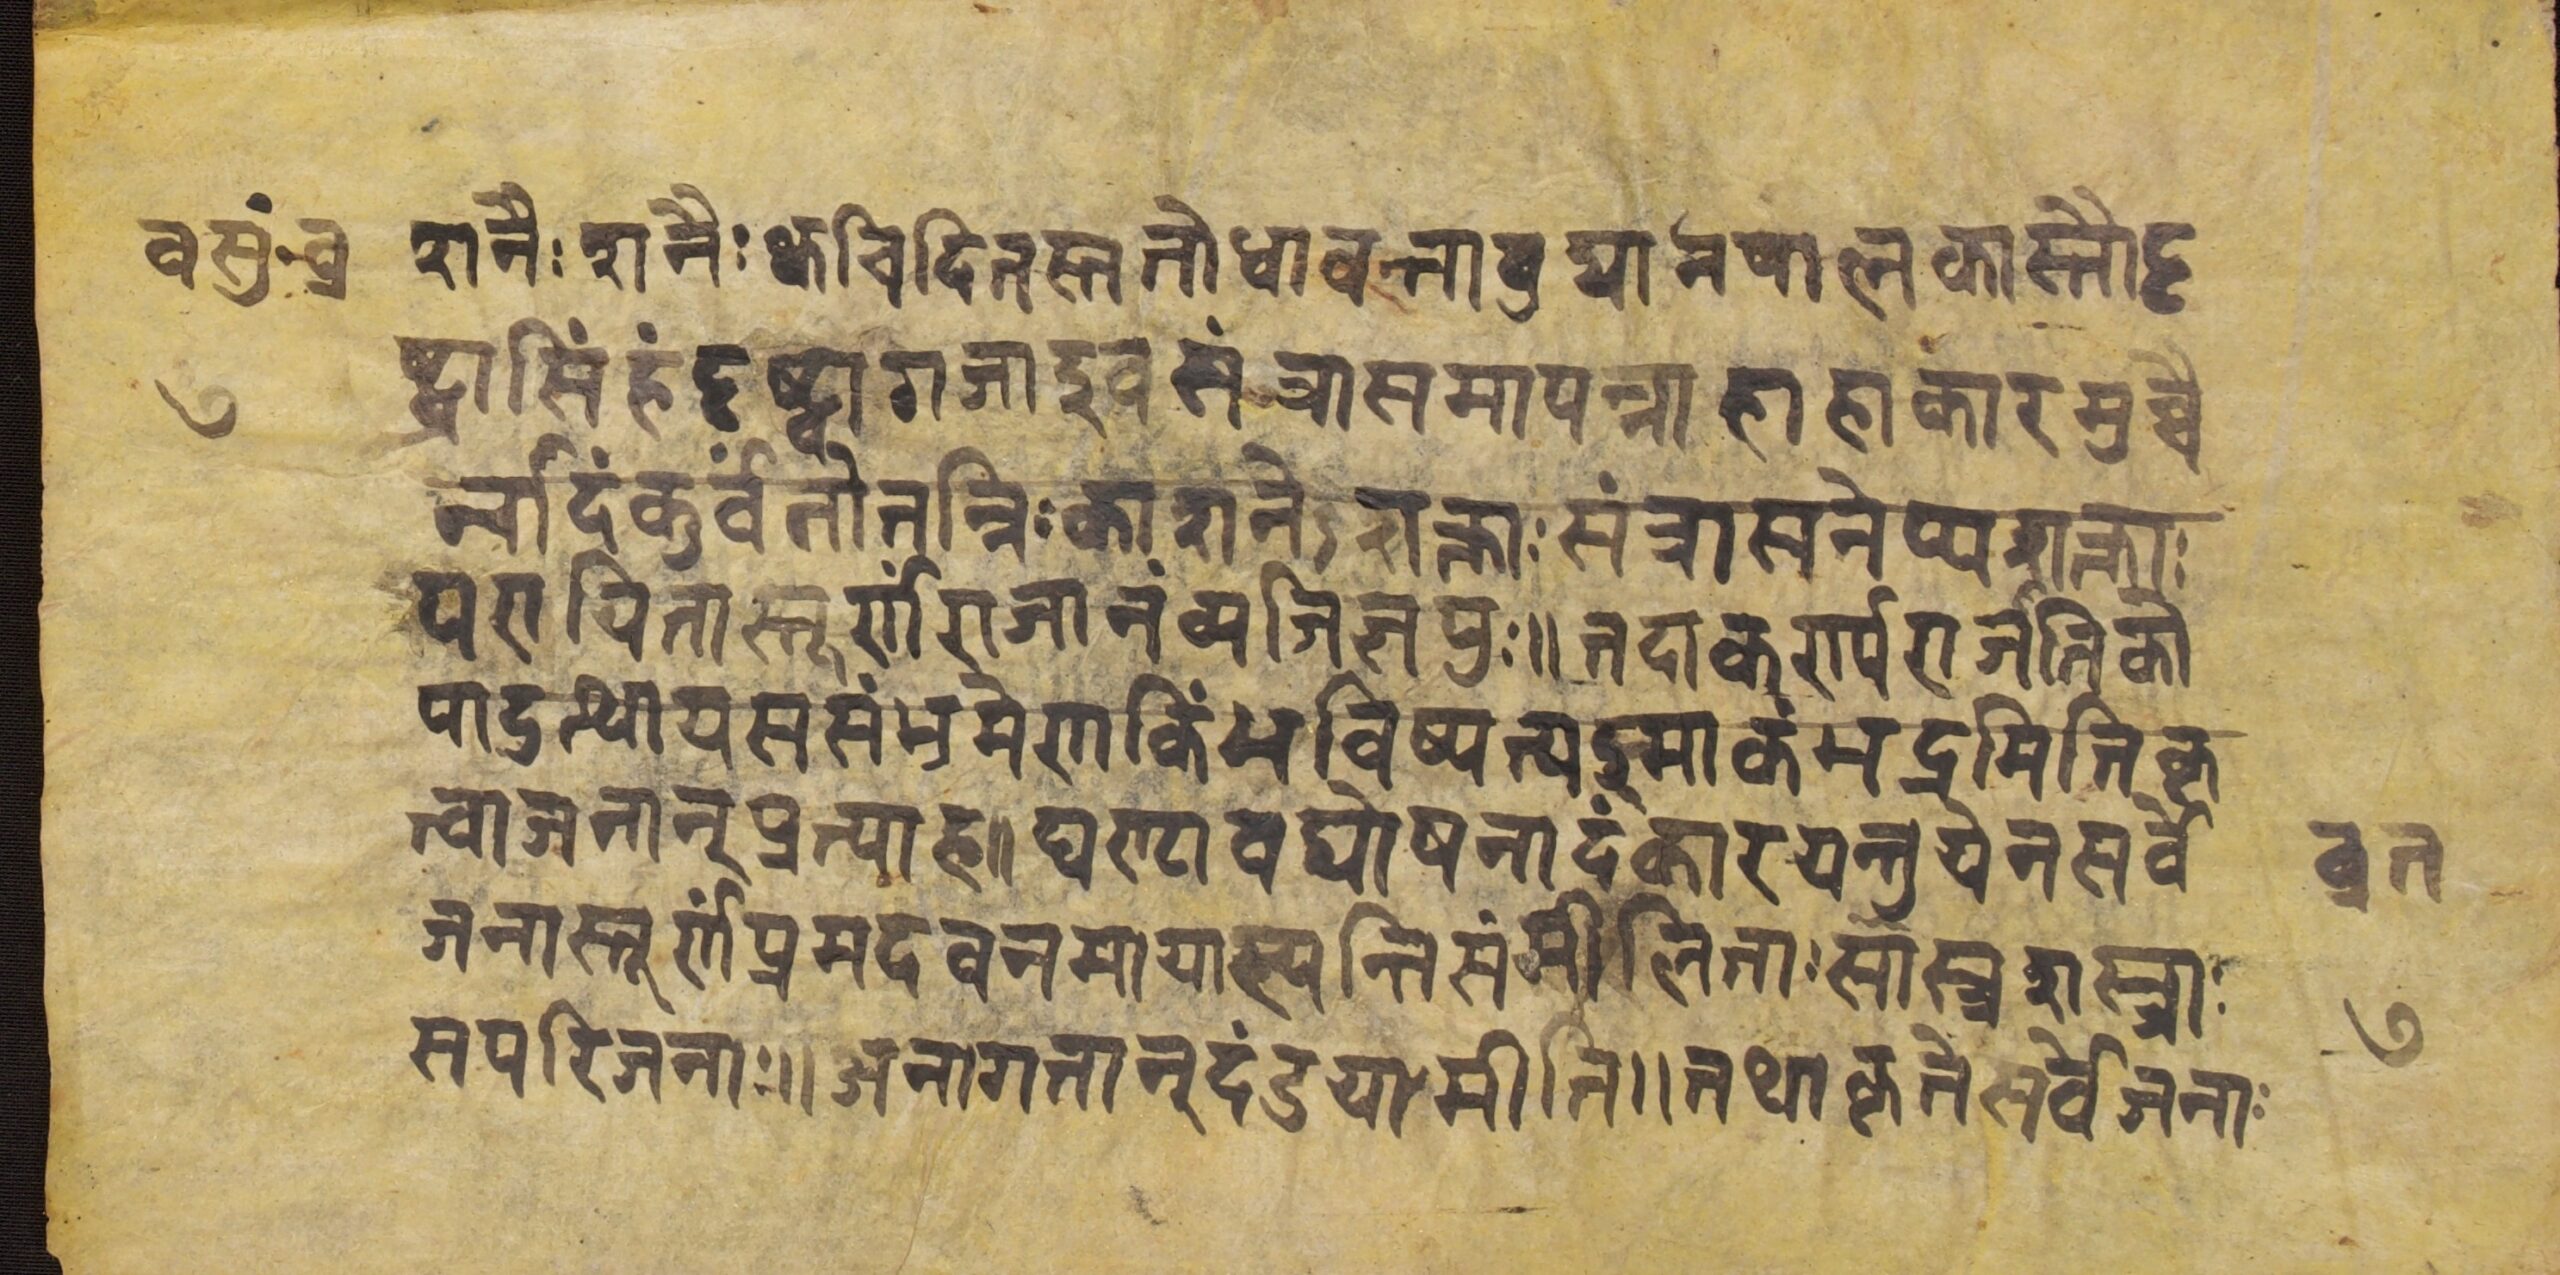 वसुं.व्र
७
शनैः शनैः क्वचिदितस्ततो धावन्तावुद्यानपालकास्तौ दृ
ष्ट्वा सिंहं दृष्ट्वा गजा इव संत्रासमापन्ना हाहाकारमुच्चै
र्नादं कुर्वतो तन्निःकाशनेऽशक्ताः संत्रासनेप्यशक्ताः
परायितास्तूर्णं राजानं व्यजिज्ञपुः॥ तदाकर्ण्य राजातिको
पादुत्थाय ससंभ्रमेण किं भविष्यत्यऽस्माकं भद्रमिति कृ
त्वा जनान् प्रत्याह॥ घण्टावघोषनादं कारयन्तु येन सर्वे
जनास्तूर्णं प्रमदवनमायास्यन्ति संमीलिताः सास्त्रशस्त्राः
सपरिजनाः॥ अनागतान् दंडयामीति॥ तथा कृते सर्वे जनाः
व्रत
७